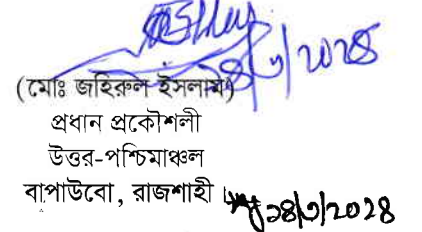 ১৪/৩/২০২৪
(মোঃ জহিরুল ইসলাম)
প্রধান প্রকৌশলী
উত্তর-পশ্চিমাঞ্চল
বাপাউবো, রাজশাহী।
১৪/৩/২০২৪